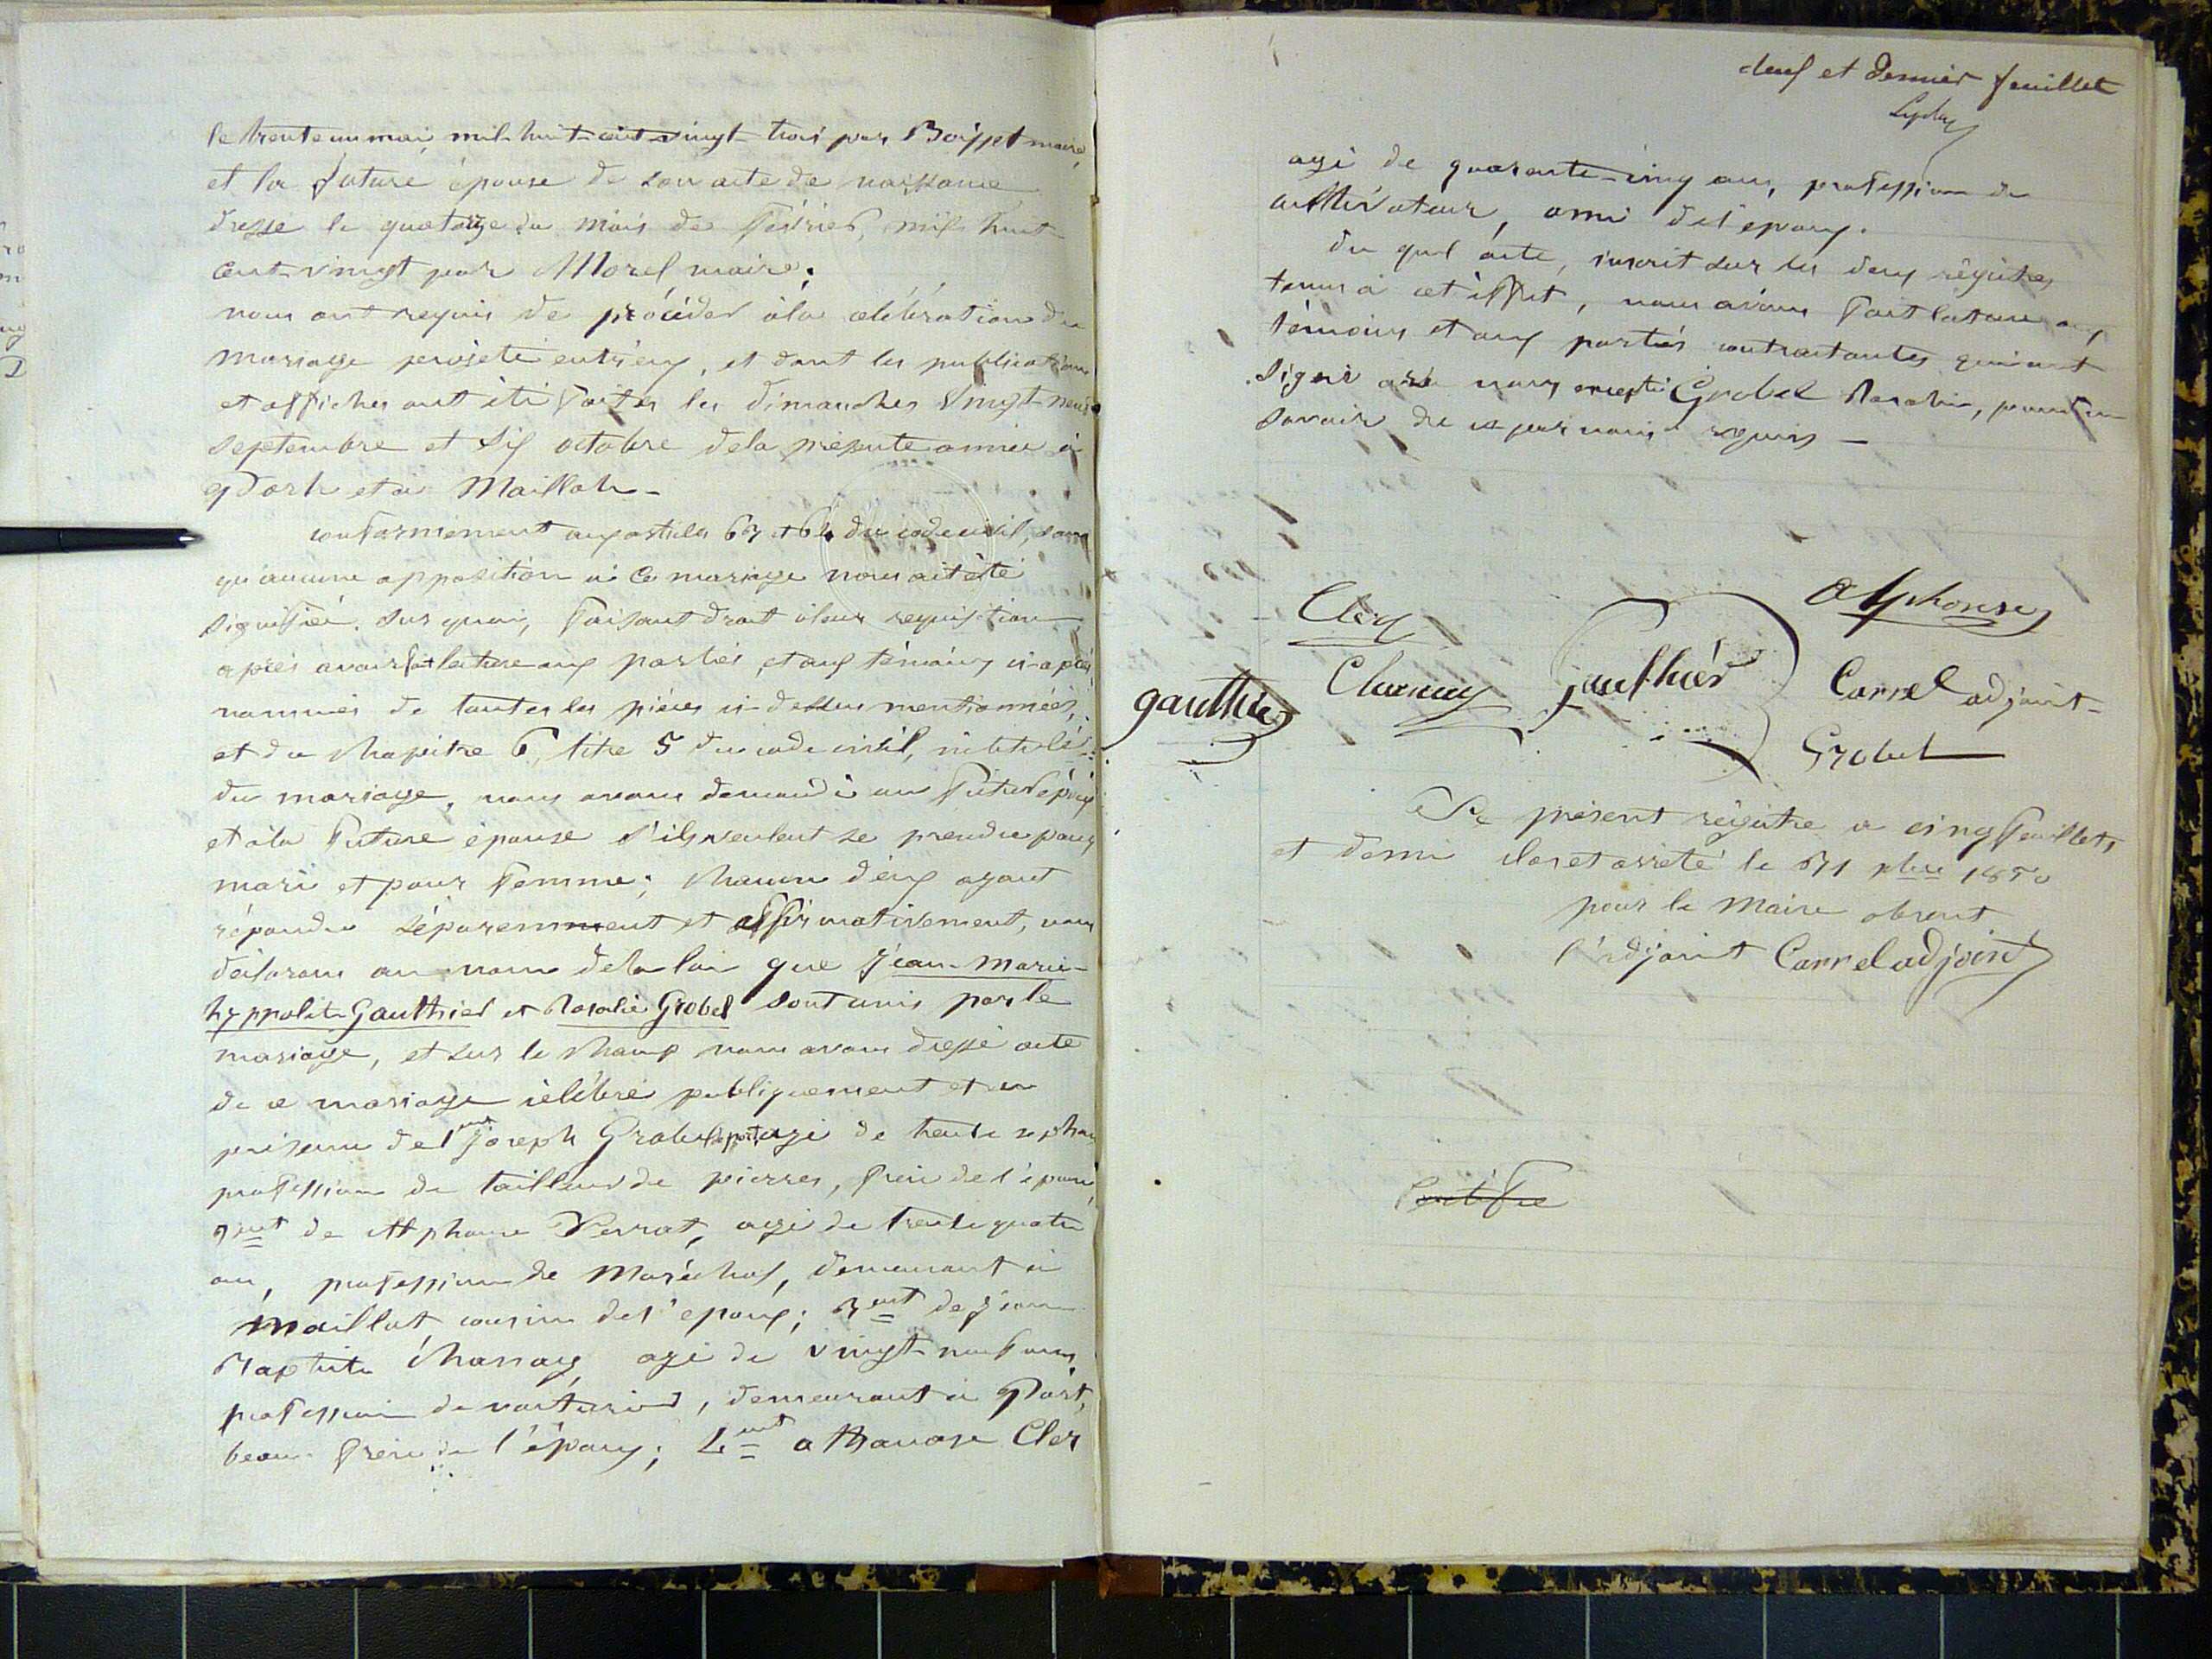 le trente un mai, mil-huit-cent-vingt-trois par Boisset maire,
et la future épouse de son acte de naissance
dresse le quatorze du mois de février, mil huit-
cent-vingt par Morel, maire;
nous ont requis de procéder à la célébration du
mariage projeté entr'eux, et dont les publications
et affiches ont été faites les dimanches vingt-neuf
septembre et six octobre de la présente année à
Port et à Maillat-
conformément aux articles 63 et 64 du code civil, sans
qu'aucune opposition à ce mariage nous ait été
signifiée. sur quoi, faisant droit à leur requisition
après avoir fait lecture aux parties, et aux témoins ci-après
nommés de toutes les pièces ci-dessus mentionnées,
et du chapitre 6, titre 5 du code civil, intitulé
du mariage, nous avons demandé au futur époux
et à la future épouse s'ils veulent se prendre pour
mari et pour femme; chacun d'eux ayant
répondu séparemment et affirmativement, nous
déclarons au nom de la loi que Jean-Marie-
hyppolite Gauthier et Rosalie Grobel sont unis par le
mariage, et sur le champ nous avons dressé acte
de ce mariage célébré publiquement et en
présence de 1ent Joseph Grobel agé de trente sept ans
profession de tailleur de pierres, frère de l'épouse,
2ent de Alphonse Perrat, agé de trente quatre
ans, profession de Maréchal, demeurant à
Maillat, cousin de l'epoux; 3ent de Jean
Baptiste Charnay, agé de vingt-neuf ans,
profession de voiturier, demeurant à Port,
beau-frère de l'époux; 4ent athanase Cler
et dernier feuillet
agé de quarante-cinq ans, profession de
cultivateur, ami de l'epoux.
du quel acte, inscrit sur les deux régistres
tenus à cet effet, nous avons fait lecture aux
témoins et aux parties contractantes qui ont
signé avec nous excepté Grobel Rosalie, pour ne
savoir de ce par nous requis-
Alphonse
Clerc
gauthier Charnay gauthier Carrel adjoint-
Grobel
Le présent régistre a cinq feuillets
et demi clos et arreté le 31 xbre 1850
pour le Maire absent
l'adjoint Carrel adjoint
Certifie